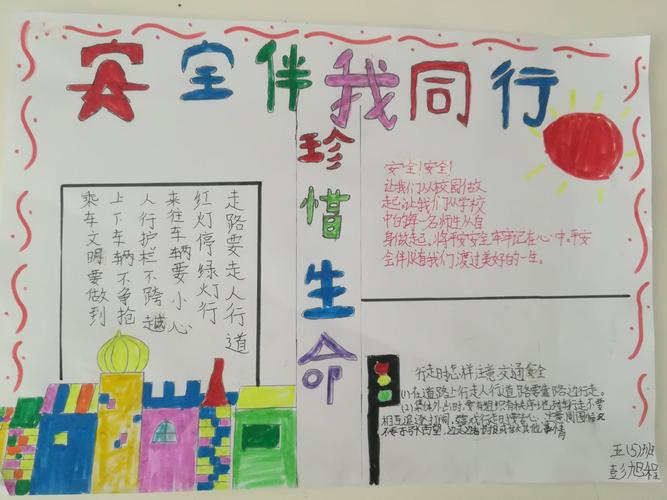 安全伴我同行
珍惜生命
走路要走人行道
红灯停绿灯行
来往车辆要小心
人行护栏不跨越
上下车辆不争抢
乘车文明要做到
安全!安全!
让我们从校园做
起,让我们从学校
中的每一名师生从自
身做起,将平安安全牢牢记在心中。平安
会伴随着我们渡过美好的一生。
行走时怎样注意交通安全
(1)在道路上行走人行道路要靠路边行走。
(2)集体外出时,要有组织有秩序地列队行走不要
相互追逐打闹、嬉戏行走时要专心、注意周围情况
不要东张西望、边走边看书报或做其他事情
五(5)班
彭旭程